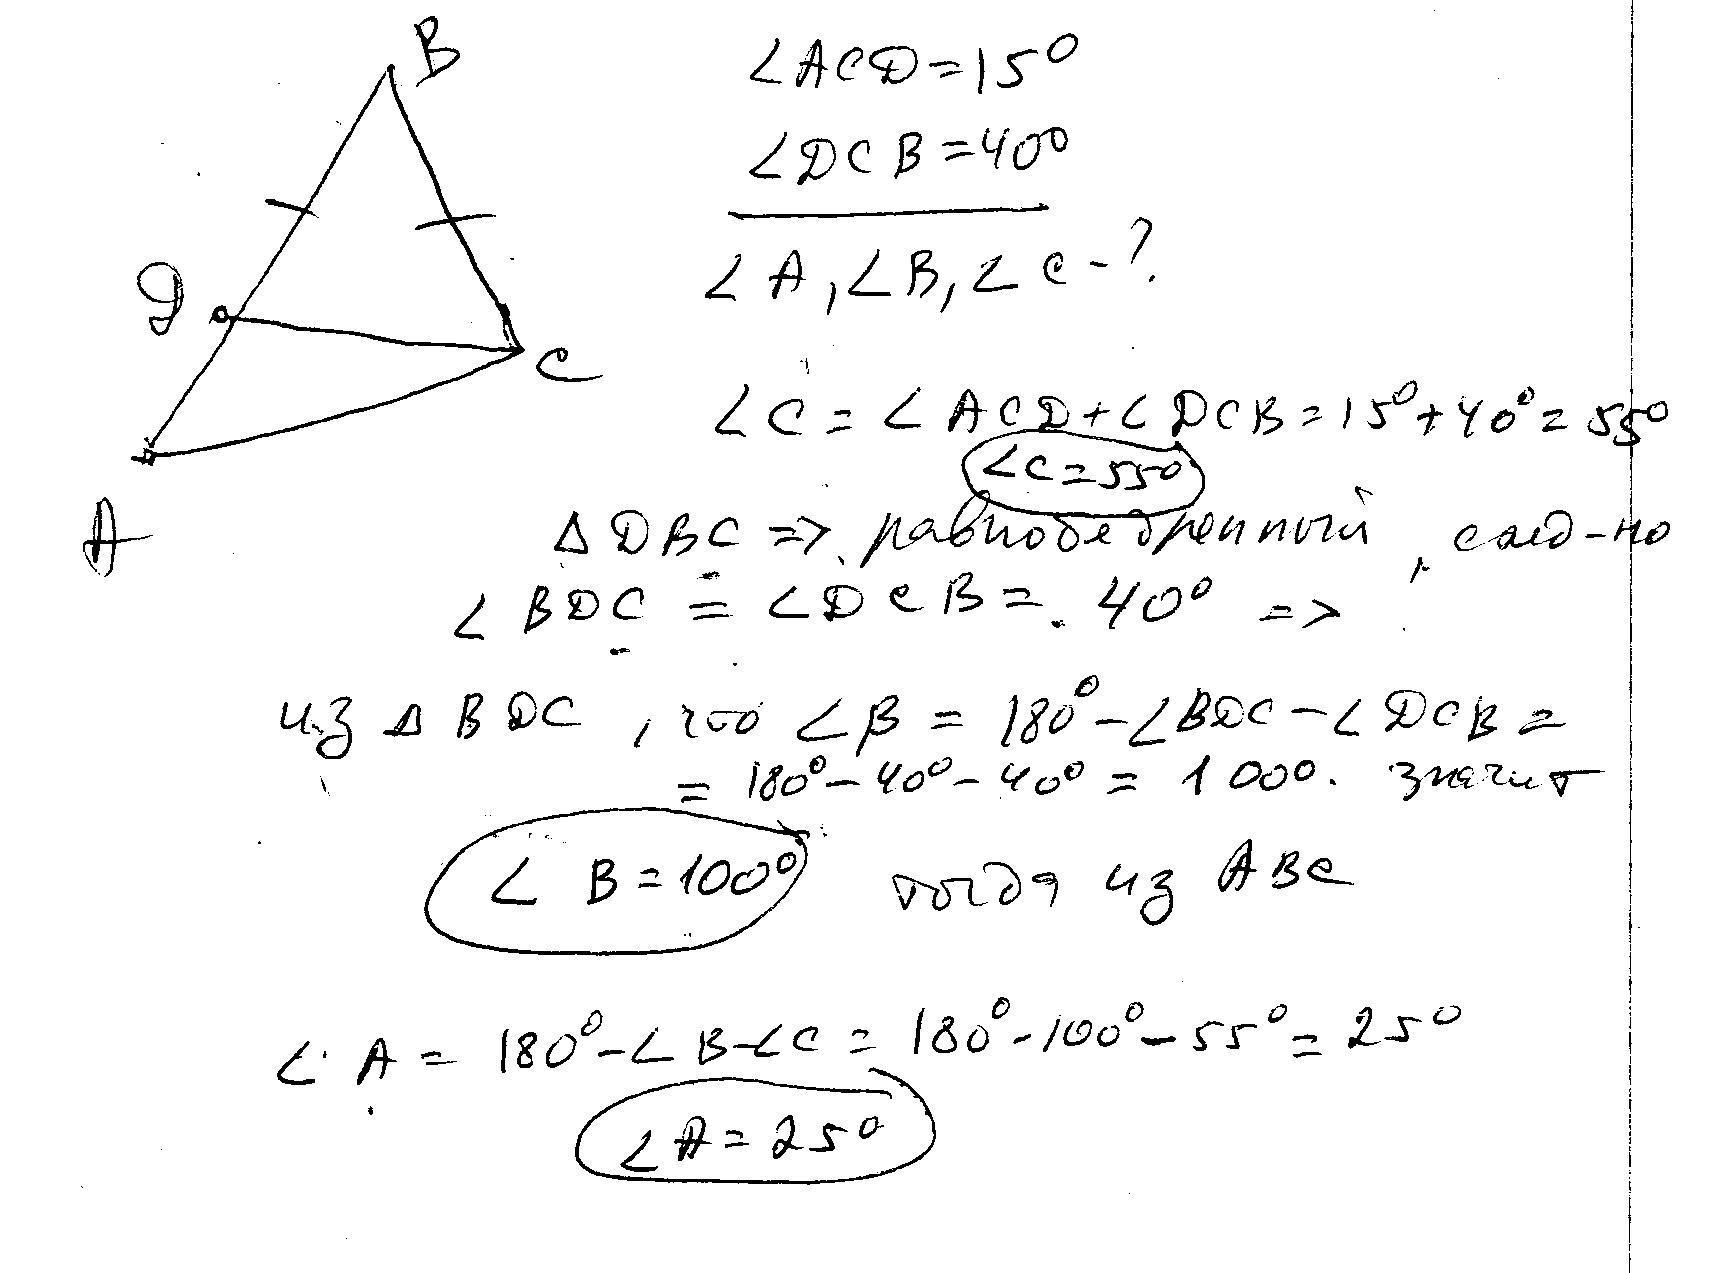 B
∠ACD=15°
∠DCB=40°
∠A, ∠B, ∠C-?
D
C
A
∠C = ∠ACD+∠DCB=15°+40°=55°
∠C=55°
Δ DBC => равнобедренный, след-но
∠BDC = ∠DCB = 40° =>
из Δ BDC, что ∠B = 180°-∠BDC-∠DCB =
= 180°-40°-40° = 100°. значит
∠B=100° тогда из ABC
∠A = 180°-∠B-∠C = 180°-100°-55° = 25°
∠A = 25°